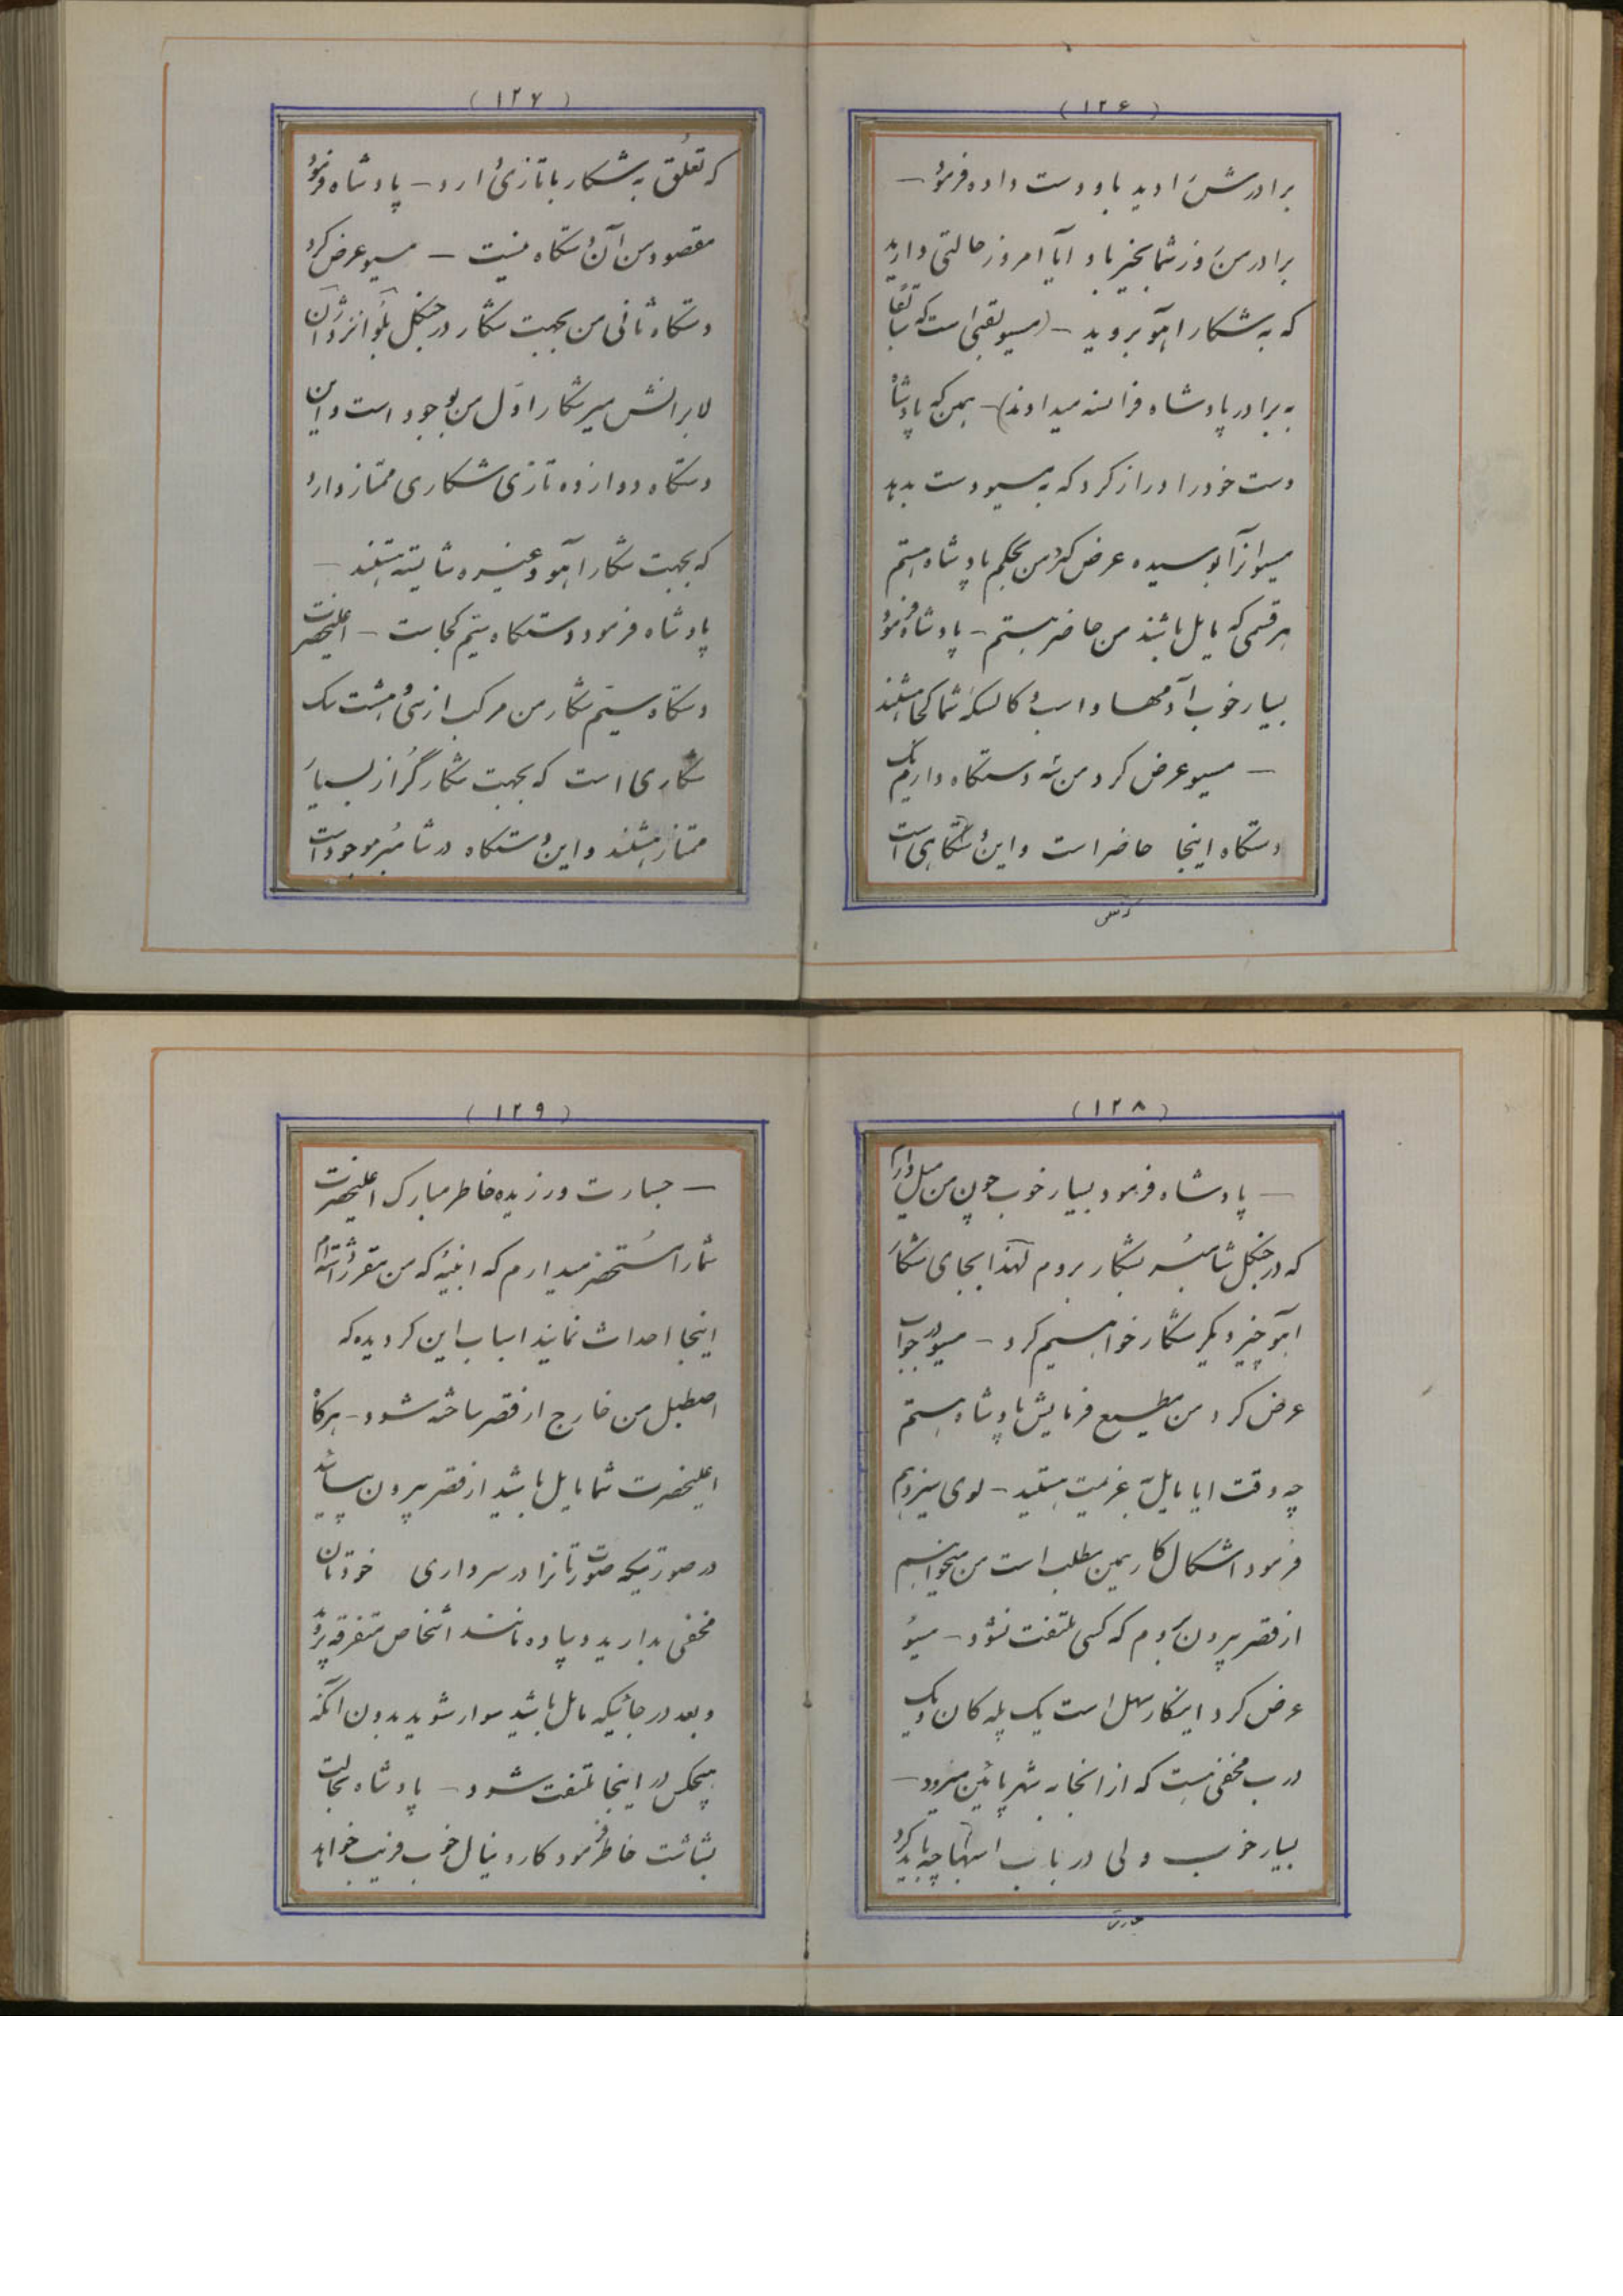 (۱۲۶)
برادرش را دید باو دست داده فرمود —
برادر من روز شما بخیر باد آیا امروز حالتی دارید
که به شکار آهو بروید — (مسیو لقبی است که سابقاً
به برادر پادشاه فرانسه میدادند) — همین که پادشاه
دست خود را دراز کرد که به مسیو دست بدهد
مسیو آنرا بوسیده عرض کرد من بحکم پادشاه هستم
هر قسمی که مایل باشند من حاضر هستم — پادشاه فرمود
بسیار خوب آدمها و اسب و کالسکه شما کجا هستند
— مسیو عرض کرد من سه دستگاه دارم یک
دستگاه اینجا حاضر است و این دستگاهی است
(۱۲۷)
که تعلق به شکار با تازی دارد — پادشاه فرمود
مقصود من آن دستگاه نیست — مسیو عرض کرد
دستگاه ثانی من بجهت شکار در جنگل
لابرانش میرشکار اول من موجود است و این
دستگاه دوازده تازی شکاری ممتاز دارد
که بجهت شکار آهو و غیره شایسته هستند —
پادشاه فرمود دستگاه سیّم کجاست — اعلیحضرت
دستگاه سیّم شکار من مرکب از سی و هشت سگ
شکاری است که بجهت شکار گراز بسیار
ممتاز هستند و این دستگاه در شامبُر موجود است
(۱۲۸)
— پادشاه فرمود بسیار خوب چون من میل دارم
که در جنگل شامبُر بشکار بروم لهذا بجای شکار
آهو چیز دیگر شکار خواهیم کرد — مسیو در جواب
عرض کرد من مطیع فرمایش پادشاه هستم
چه وقت آیا مایل به عزیمت هستید — لوی سیزدهم
فرمود اشکال کار همین مطلب است من میخواهم
از قصر بیرون بروم که کسی ملتفت نشود — مسیو
عرض کرد اینکار سهل است یک پله کان و یک
درب مخفی هست که از اینجا به شهر پائین میرود —
بسیار خوب ولی در باب اسبها چه باید کرد
(۱۲۹)
— جسارت ورزیده خاطر مبارک اعلیحضرت
شما را مُستحضر میدارم که ابنیهٔ که من مقرر داشته‌ام
اینجا احداث نمایند اسباب این گردیده که
اصطبل من خارج از قصر ساخته شود — هرگاه
اعلیحضرت شما مایل باشید از قصر بیرون بیائید
در صورتیکه صورتتان را در سرداری خودتان
مخفی بدارید و پیاده مانند اشخاص متفرقه بروید
و بعد در جائیکه مایل باشید سوار شوید بدون آنکه
هیچکس در اینجا ملتفت شود — پادشاه بحالت
بشاشت خاطر فرمود کاردینال خوب فریب خواهد